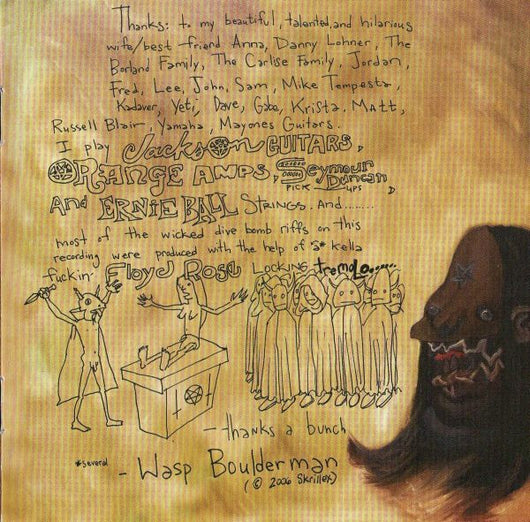 Thanks: to my beautiful, talented, and hilarious
wife/best friend Anna, Danny Lohner, The
Borland Family, The Carlise Family, Jordan,
Fred, Lee, John, Sam, Mike Tempesta,
Kadaver, Yeti, Dave, Gabe, Krista, Matt,
Russell Blair, Yamaha, Mayones Guitars.
I play Jackson GUITARS,
ORANGE AMPS, Seymour Duncan PICK UPS,
And ERNIE BALL STRINGS. And........
most of the wicked dive bomb riffs on this
recording were produced with the help of 3* kella
fuckin' Floyd Rose LOCKING tremolo......
- thanks a bunch
*several
- Wasp Boulderman
(© 2006 Skrillex)